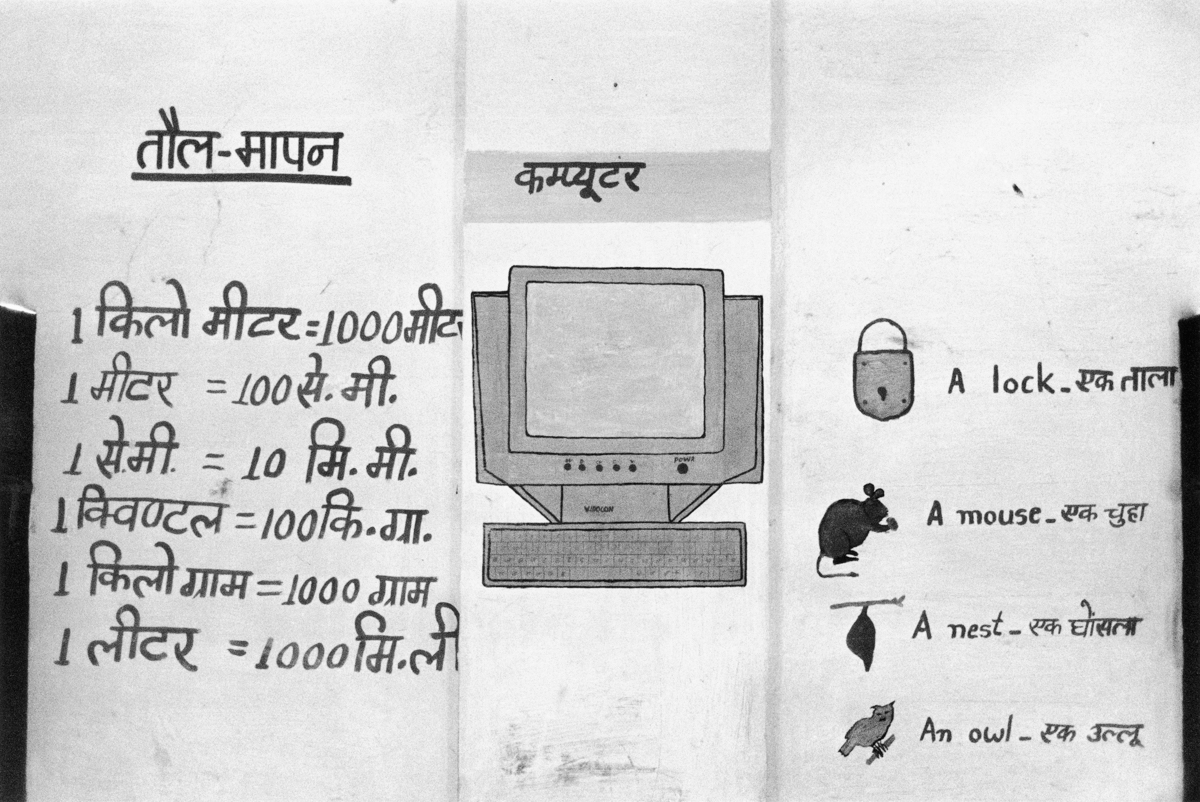 तौल-मापन
1 किलो मीटर=1000मीटर
1 मीटर = 100से. मी.
1 से.मी. = 10 मि. मी.
1क्विण्टल=100कि.ग्रा.
1 किलो ग्राम=1000 ग्राम
1 लीटर = 1000मि.ली
कम्प्यूटर
POWR
A lock-एक ताला
A mouse-एक चुहा
A nest-एक घोंसला
An owl-एक उल्लू